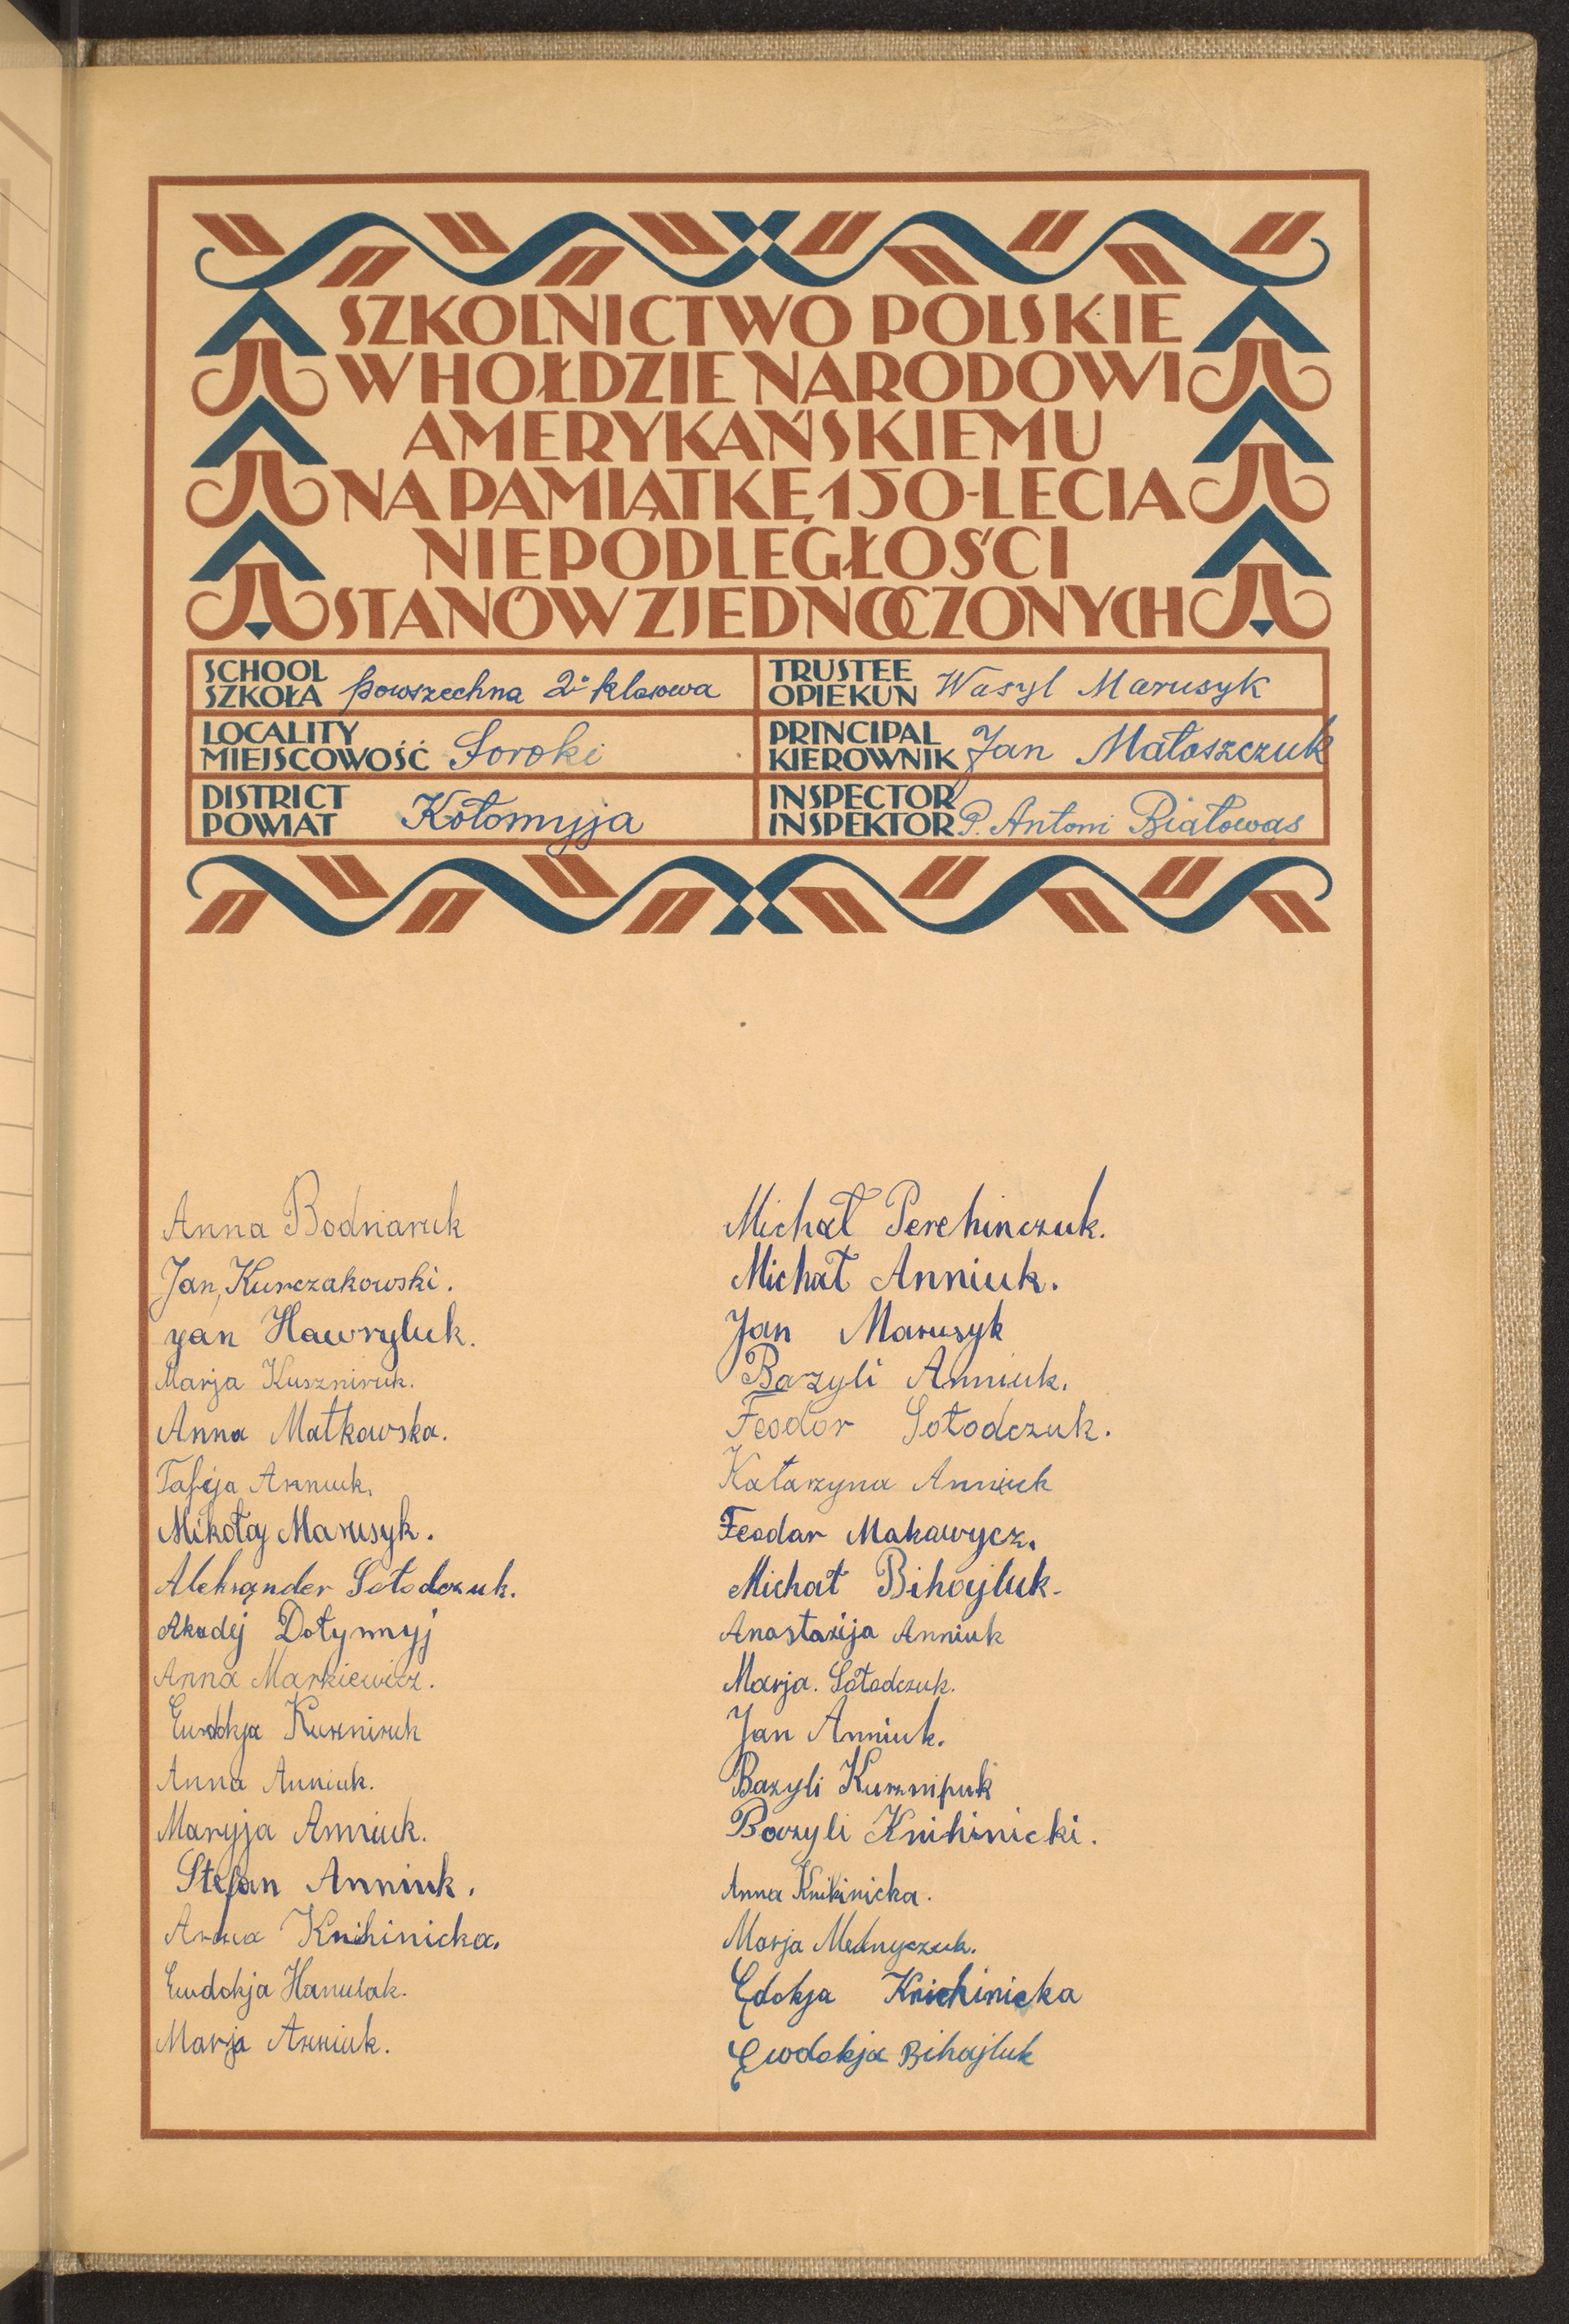 SZKOLNICTWO POLSKIE
W HOŁDZIE NARODOWI
AMERYKAŃSKIEMU
NA PAMIĄTKĘ 150-LECIA
NIEPODLEGŁOŚCI
STANÓW ZJEDNOCZONYCH
SCHOOL
SZKOŁA powszechna 2 klasowa
TRUSTEE
OPIEKUN Wasyl Marusyk
LOCALITY
MIEJSCOWOŚĆ Soroki
PRINCIPAL
KIEROWNIK Jan Małoszczuk
DISTRICT
POWIAT Kołomyja
INSPECTOR
INSPEKTOR P. Antoni Białowąs
Anna Bodnaruk
Jan Kurczakowski.
yan Hawryluk.
Marja Kuszniruk.
Anna Matkowska.
Anniuk.
Mikołaj Marusyk.
Aleksander Sołodczuk.
Akadej Dołymyj
Anna Markiewicz.
Ewdokja Kuzniruk
Anna Anniuk.
Maryja Anniuk.
Stefan Anniuk.
Anna Knihinicka.
Ewdokja Hanulak.
Marja Anniuk.
Michał Perehinczuk.
Michał Anniuk.
Jan Marusyk
Bazyli Anniuk.
Feodor Sołodczuk.
Katarzyna Anniuk
Feodar Makawycz.
Michał Bihajluk.
Anastazija Anniuk
Marja. Sołodczuk.
Jan Anniuk.
Bazyli
Bazyli Knihinicki.
Anna Knihinicka.
Marja Mednyczuk.
Edokja Knichinicka
Ewdokja Bihajluk